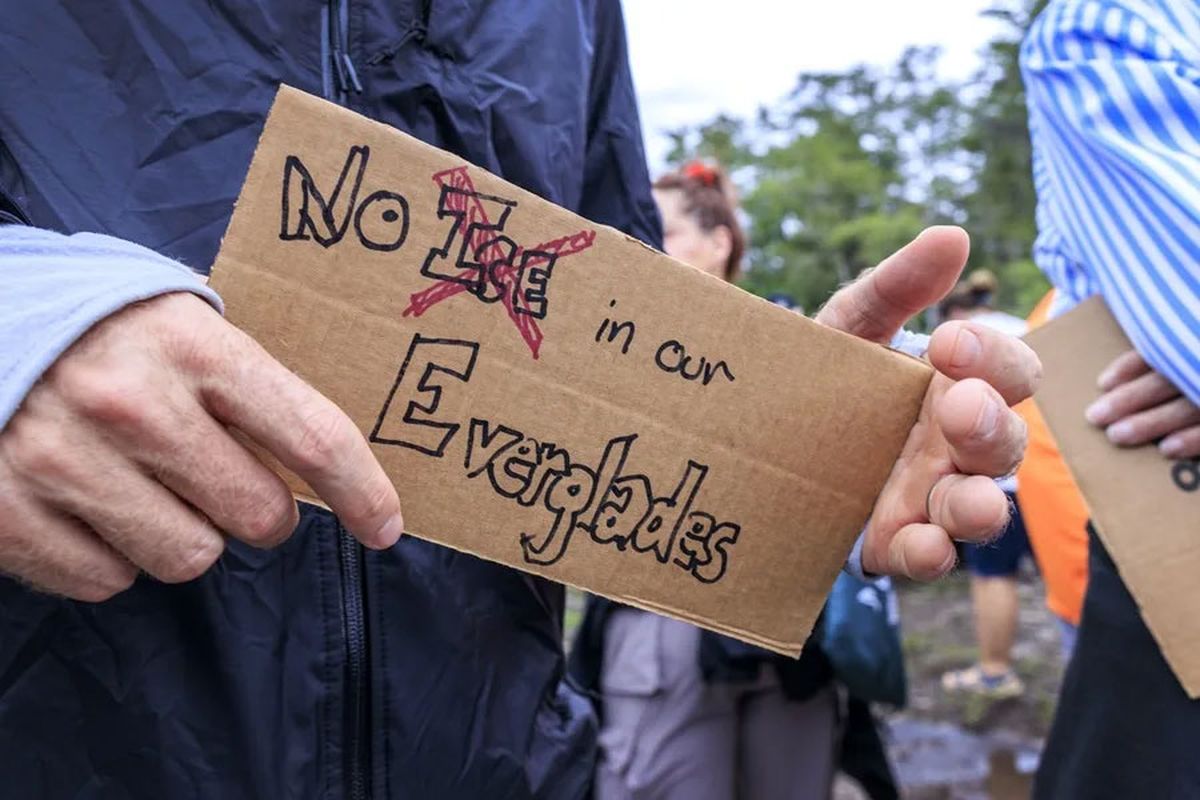 No ICE in our
Everglades